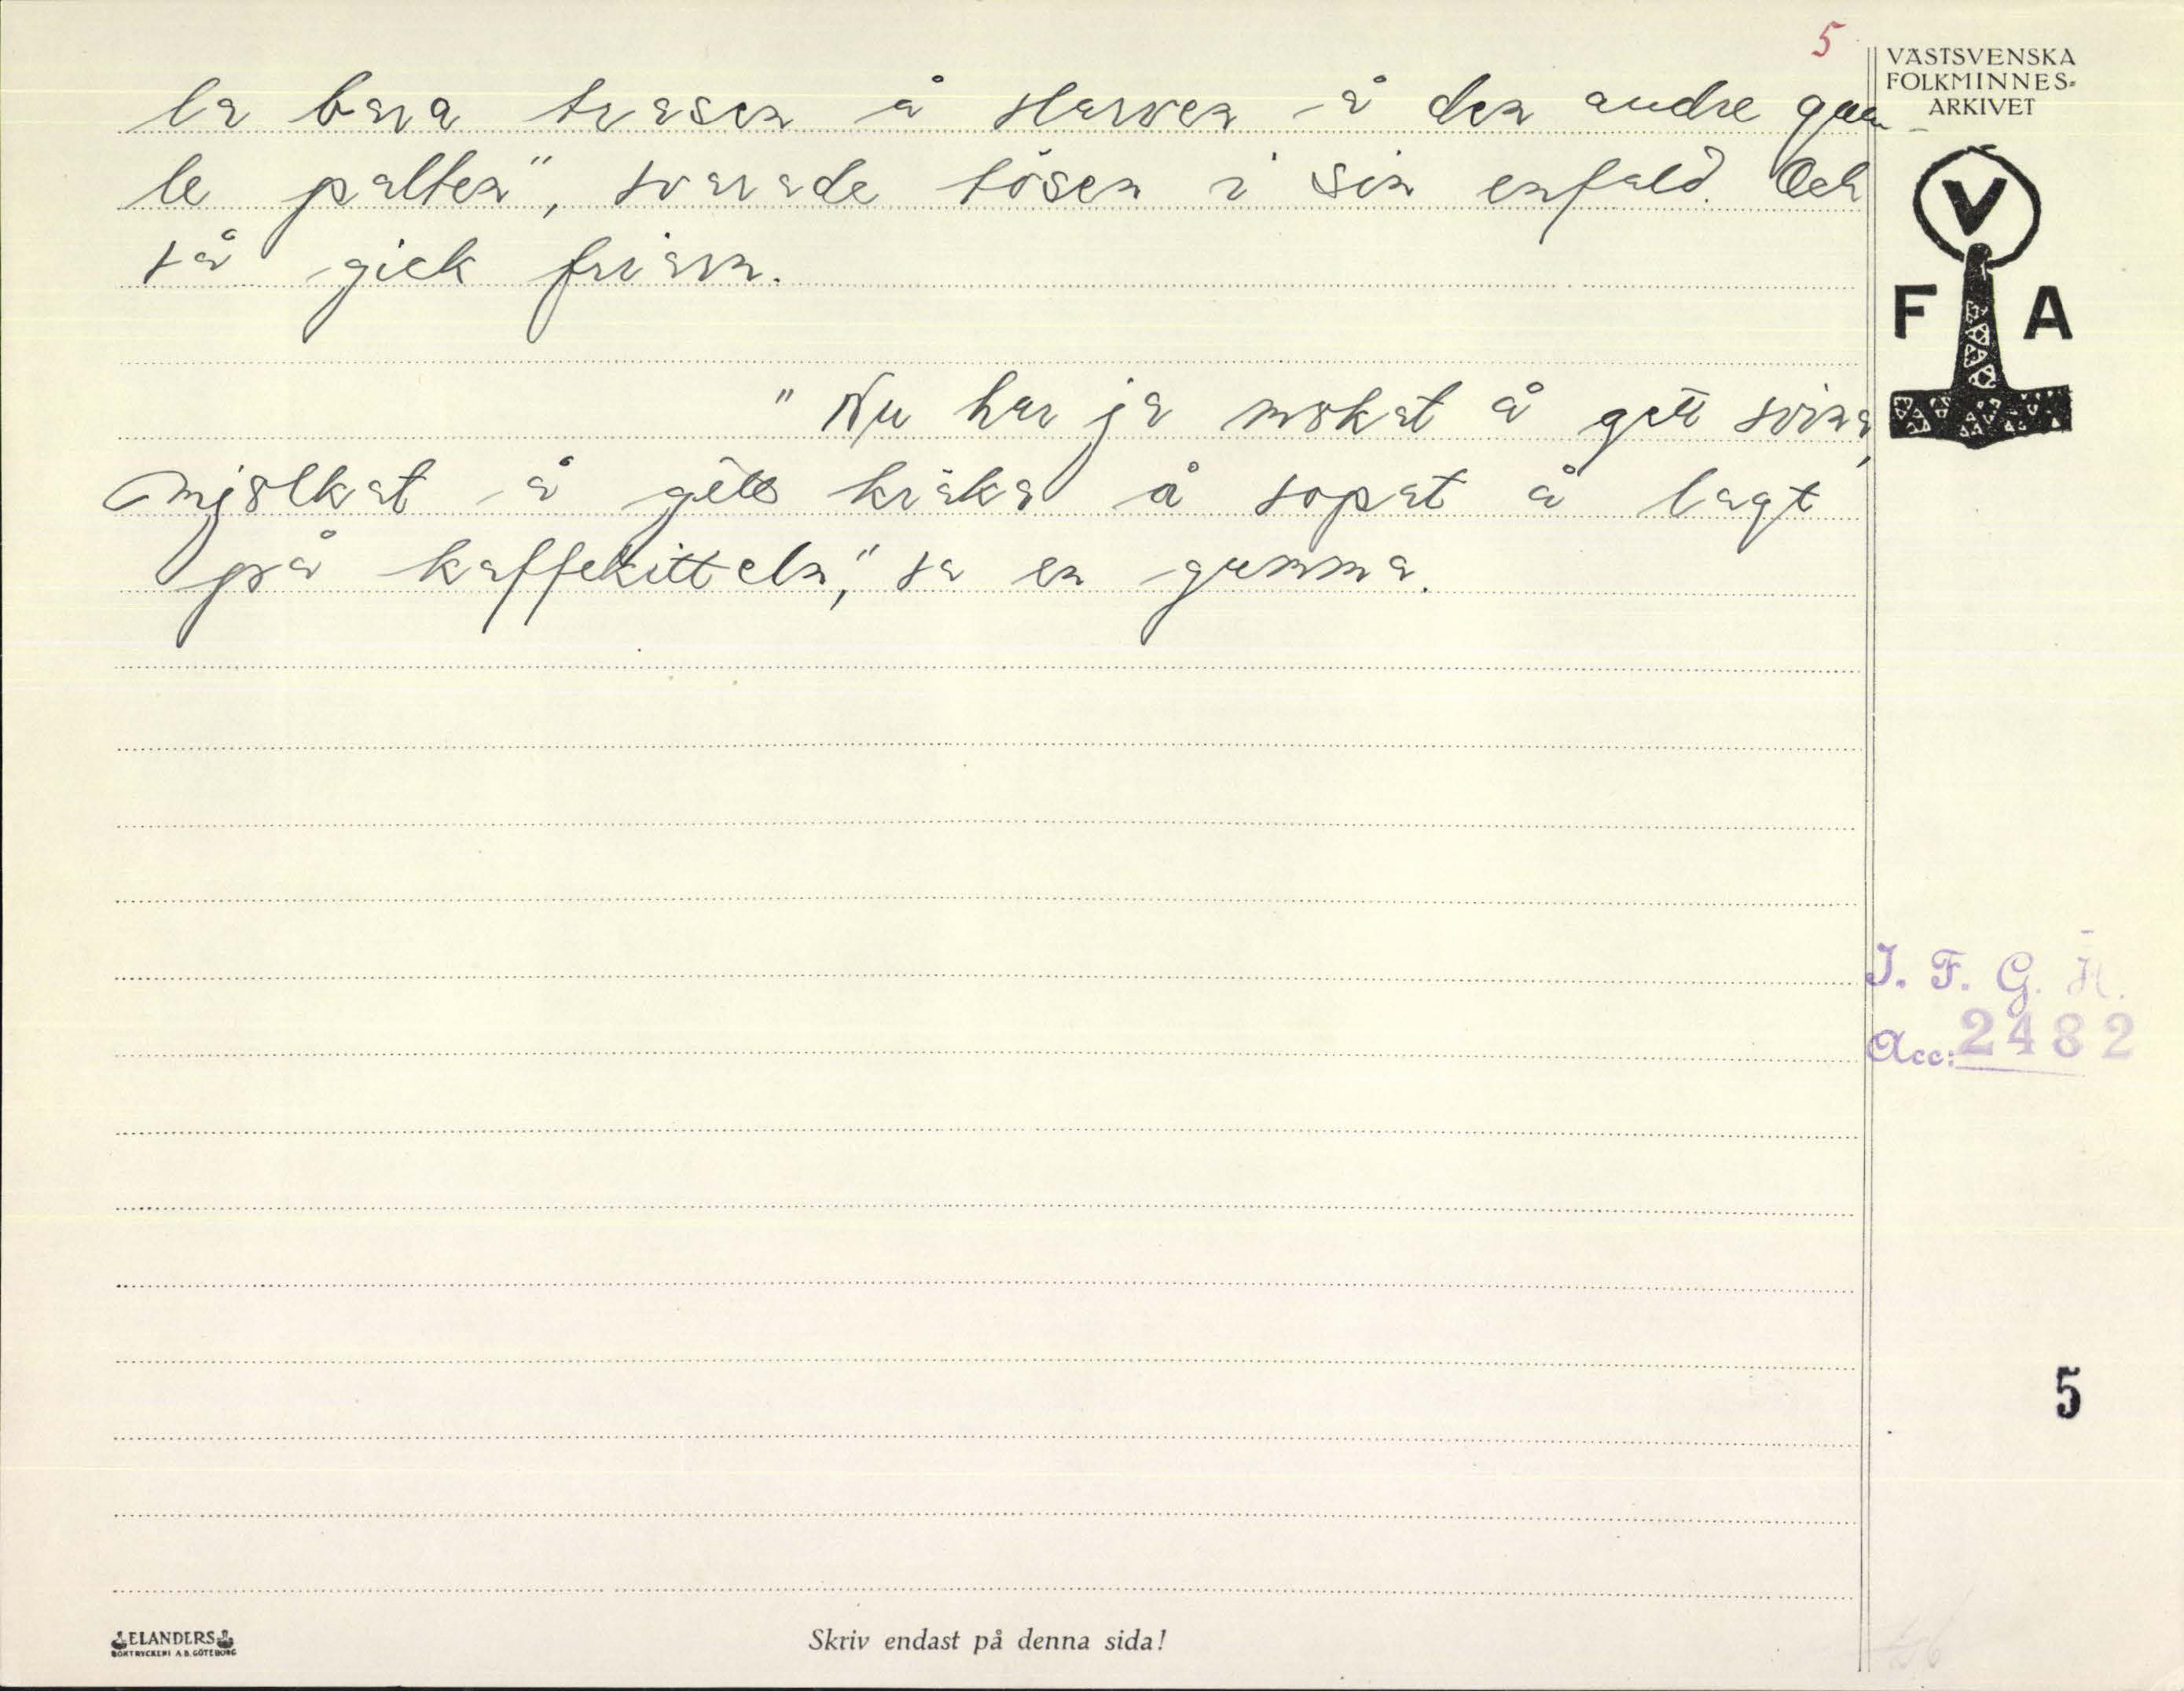 5
VÄSTSVENSKA
FOLKMINNES=
ARKIVET
la bara trasen å slarven å den andre gam-
le palten", svarade tösen i sin enfald. Och
så gick friarn.
V
F A
"Nu har ja mokat å gett svina,
mjölkat å gett kräka å sopat å lagt
på kaffekitteln," sa en gumma.
I. F. G. H.
Acc: 2482
5
ELANDERS
BOKTRYCKERI A.B. GÖTEBORG
Skriv endast på denna sida!